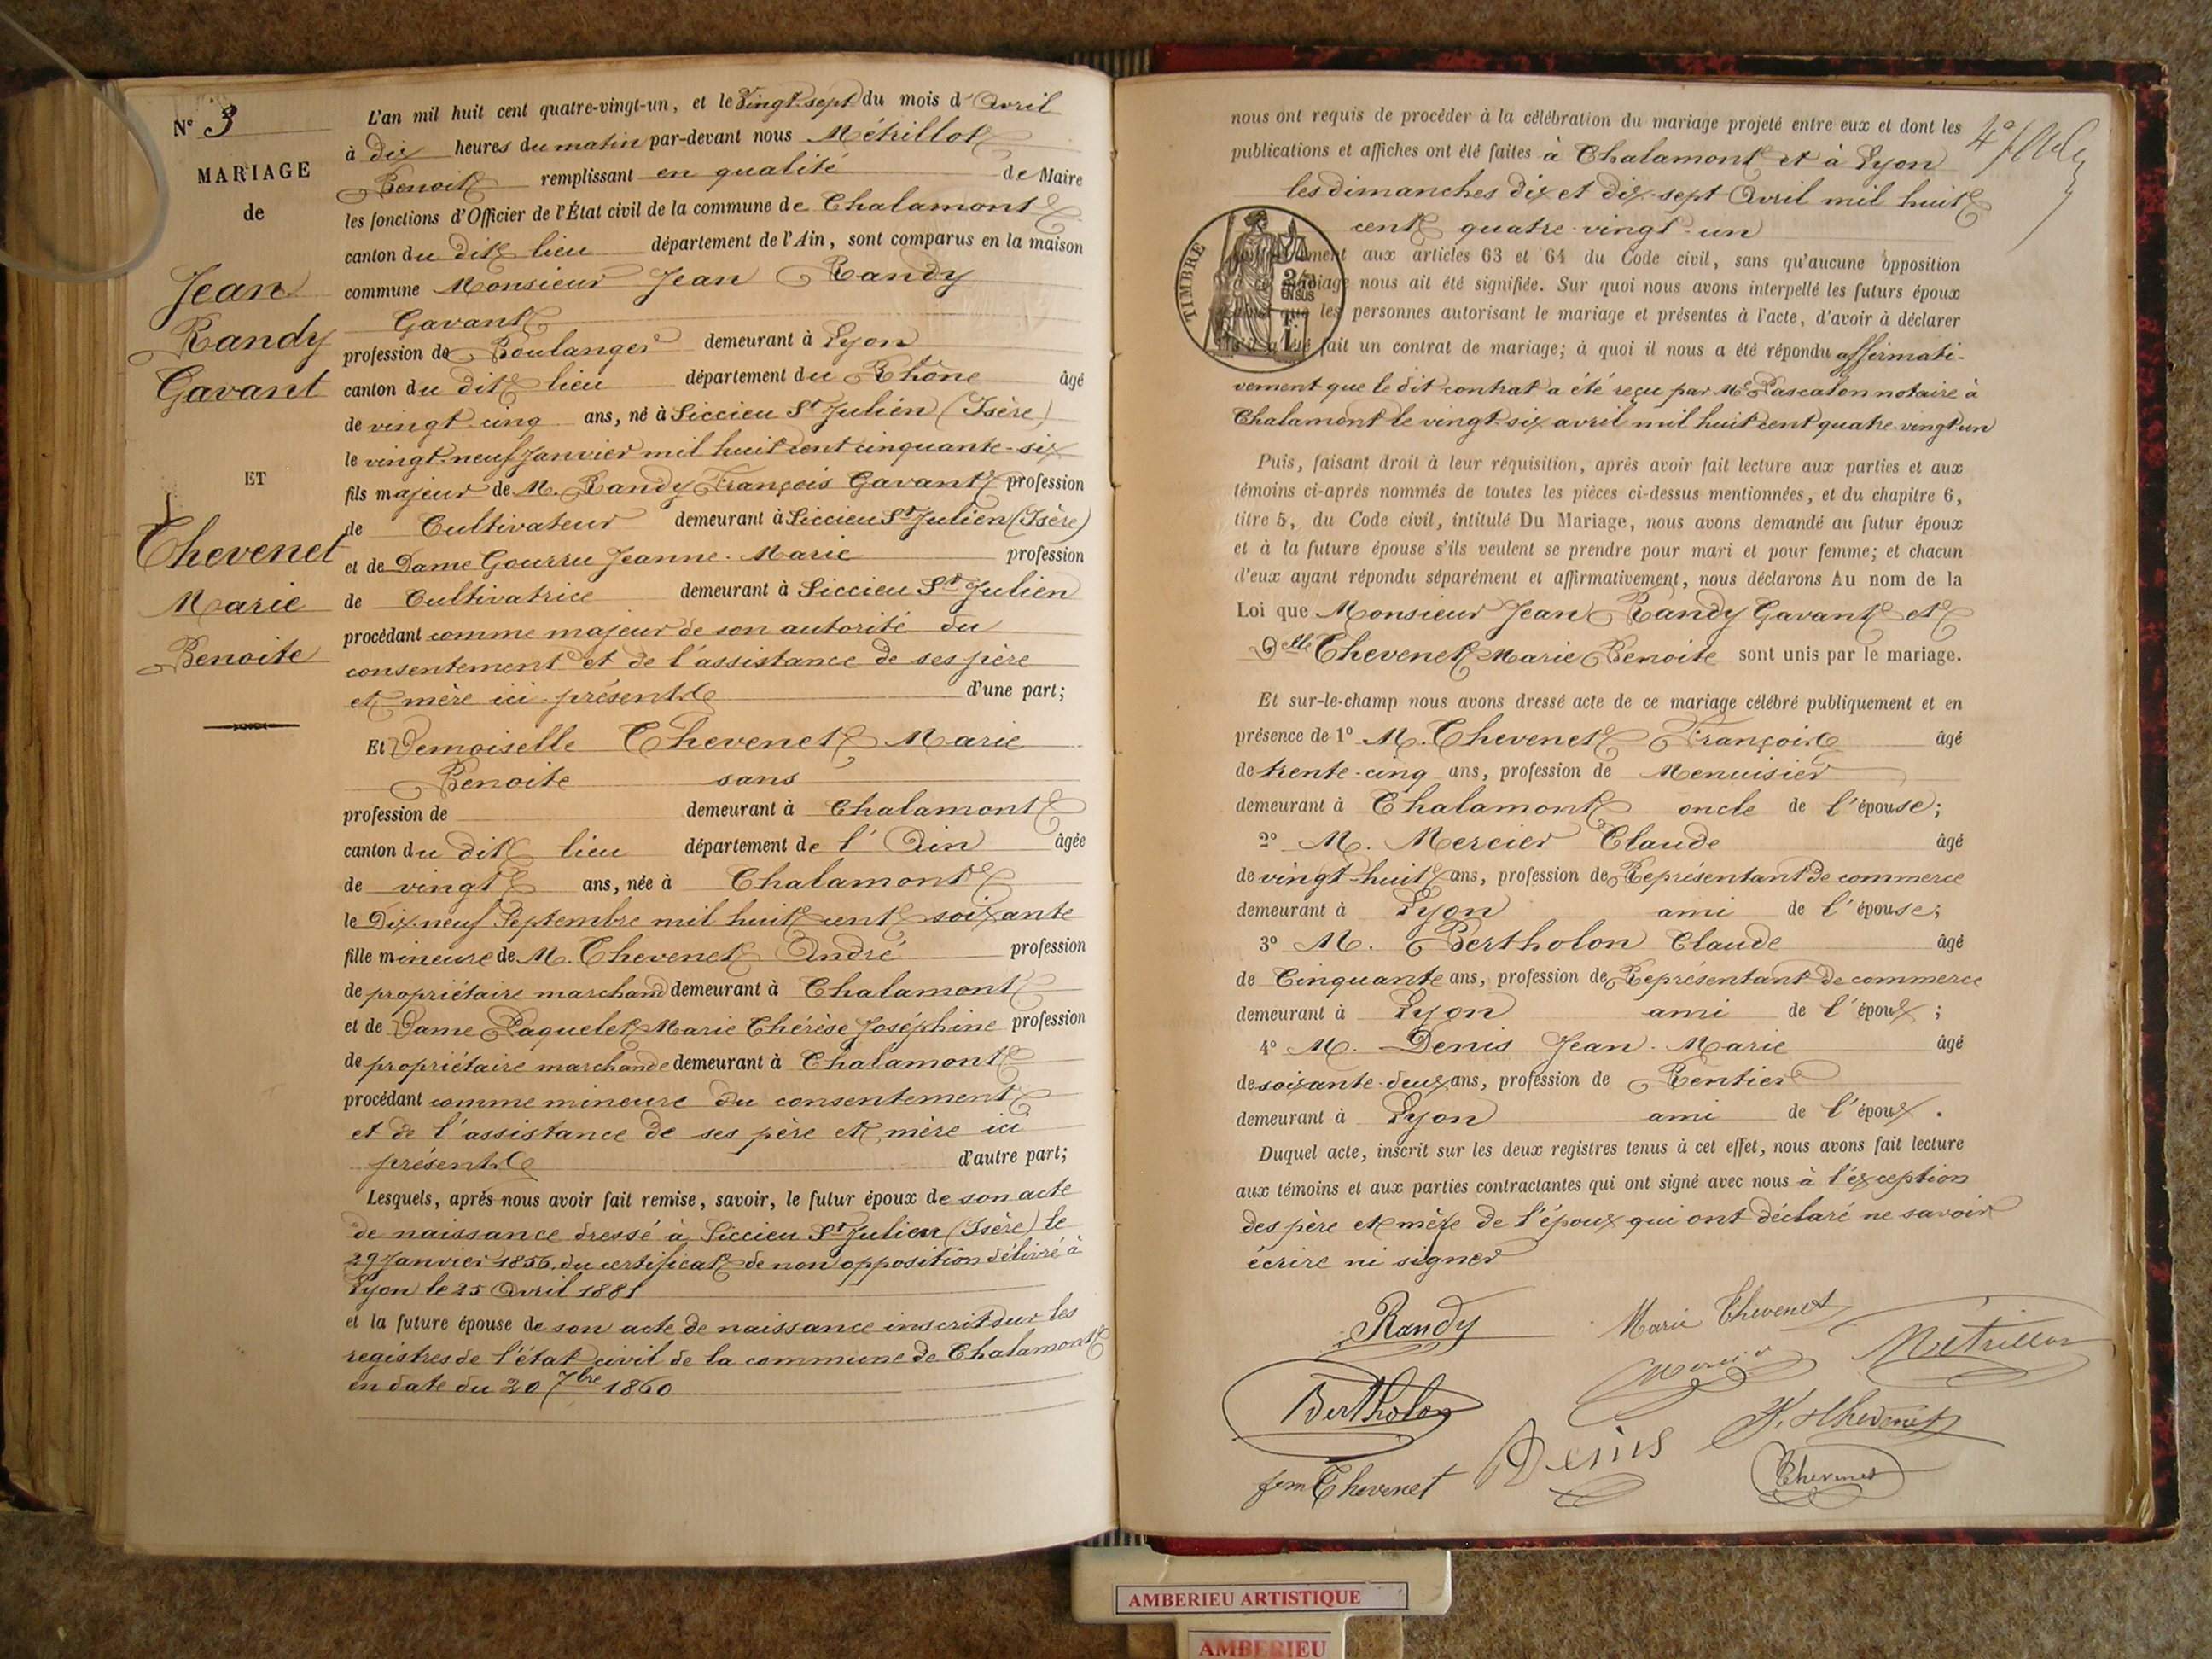 N° 3
MARIAGE
de
Jean
Randy
Gavant
ET
Chevenet
Marie
Benoite
L'an mil huit cent quatre-vingt-un, et le Vingt-sept du mois d'Avril
à dix heures du matin par-devant nous Métrillot
Benoit remplissant en qualité de Maire
les fonctions d'Officier de l'État civil de la commune de Chalamont
canton du dit lieu département de l'Ain, sont comparus en la maison
commune Monsieur Jean Randy
Gavant
profession de Boulanger demeurant à Lyon
canton du dit lieu département du Rhône âgé
de vingt-cinq ans, né à Siccieu St Julien (Isère)
le vingt-neuf Janvier mil huit cent cinquante-six
fils majeur de M. Randy François Gavant profession
de Cultivateur demeurant à Siccieu St Julien (Isère)
et de Dame Gourru Jeanne-Marie profession
de Cultivatrice demeurant à Siccieu St Julien
procédant comme majeur de son autorité du
consentement et de l'assistance de ses père
et mère ici présents d'une part;
Et Demoiselle Chevenet Marie
Benoite sans
profession de demeurant à Chalamont
canton du dit lieu département de l'Ain âgée
de vingt ans, née à Chalamont
le Dix-neuf Septembre mil huit cent soixante
fille mineure de M. Chevenet André profession
de propriétaire marchand demeurant à Chalamont
et de Dame Paquelet Marie Thérèse Joséphine profession
de propriétaire marchande demeurant à Chalamont
procédant comme mineure du consentement
et de l'assistance de ses père et mère ici
présents d'autre part;
Lesquels, après nous avoir fait remise, savoir, le futur époux de son acte
de naissance dressé à Siccieu St Julien (Isère) le
29 Janvier 1856, du certificat de non opposition délivré à
Lyon le 25 Avril 1881
et la future épouse de son acte de naissance inscrit sur les
registres de l'état civil de la commune de Chalamont
en date du 20 7bre 1860
nous ont requis de procéder à la célébration du mariage projeté entre eux et dont les
publications et affiches ont été faites à Chalamont et à Lyon
les dimanches dix et dix-sept Avril mil huit
cent quatre-vingt-un
aux articles 63 et 64 du Code civil, sans qu'aucune opposition
mariage nous ait été signifiée. Sur quoi nous avons interpellé les futurs époux
que les personnes autorisant le mariage et présentes à l'acte, d'avoir à déclarer
fait un contrat de mariage; à quoi il nous a été répondu affirmati-
vement que le dit contrat a été reçu par Me Pascalon notaire à
Chalamont le vingt-six avril mil huit cent quatre-vingt-un
TIMBRE
EN SUS
Puis, faisant droit à leur réquisition, après avoir fait lecture aux parties et aux
témoins ci-après nommés de toutes les pièces ci-dessus mentionnées, et du chapitre 6,
titre 5, du Code civil, intitulé Du Mariage, nous avons demandé au futur époux
et à la future épouse s'ils veulent se prendre pour mari et pour femme; et chacun
d'eux ayant répondu séparément et affirmativement, nous déclarons Au nom de la
Loi que Monsieur Jean Randy Gavant et
Delle Chevenet Marie Benoite sont unis par le mariage.
Et sur-le-champ nous avons dressé acte de ce mariage célébré publiquement et en
présence de 1° M. Chevenet François âgé
de trente-cinq ans, profession de Menuisier
demeurant à Chalamont oncle de l'épouse;
2° M. Mercier Claude âgé
de vingt-huit ans, profession de Représentant de commerce
demeurant à Lyon ami de l'épouse;
3° M. Bertholon Claude âgé
de Cinquante ans, profession de Représentant de commerce
demeurant à Lyon ami de l'époux;
4° M. Denis Jean-Marie âgé
de soixante-deux ans, profession de Rentier
demeurant à Lyon ami de l'époux.
Duquel acte, inscrit sur les deux registres tenus à cet effet, nous avons fait lecture
aux témoins et aux parties contractantes qui ont signé avec nous à l'exception
des père et mère de l'époux qui ont déclaré ne savoir
écrire ni signer
Randy Marie Chevenet Métrillot
Bertholon Mercier F. Chevenet
fem Chevenet Denis Chevenet
AMBERIEU ARTISTIQUE
AMBERIEU